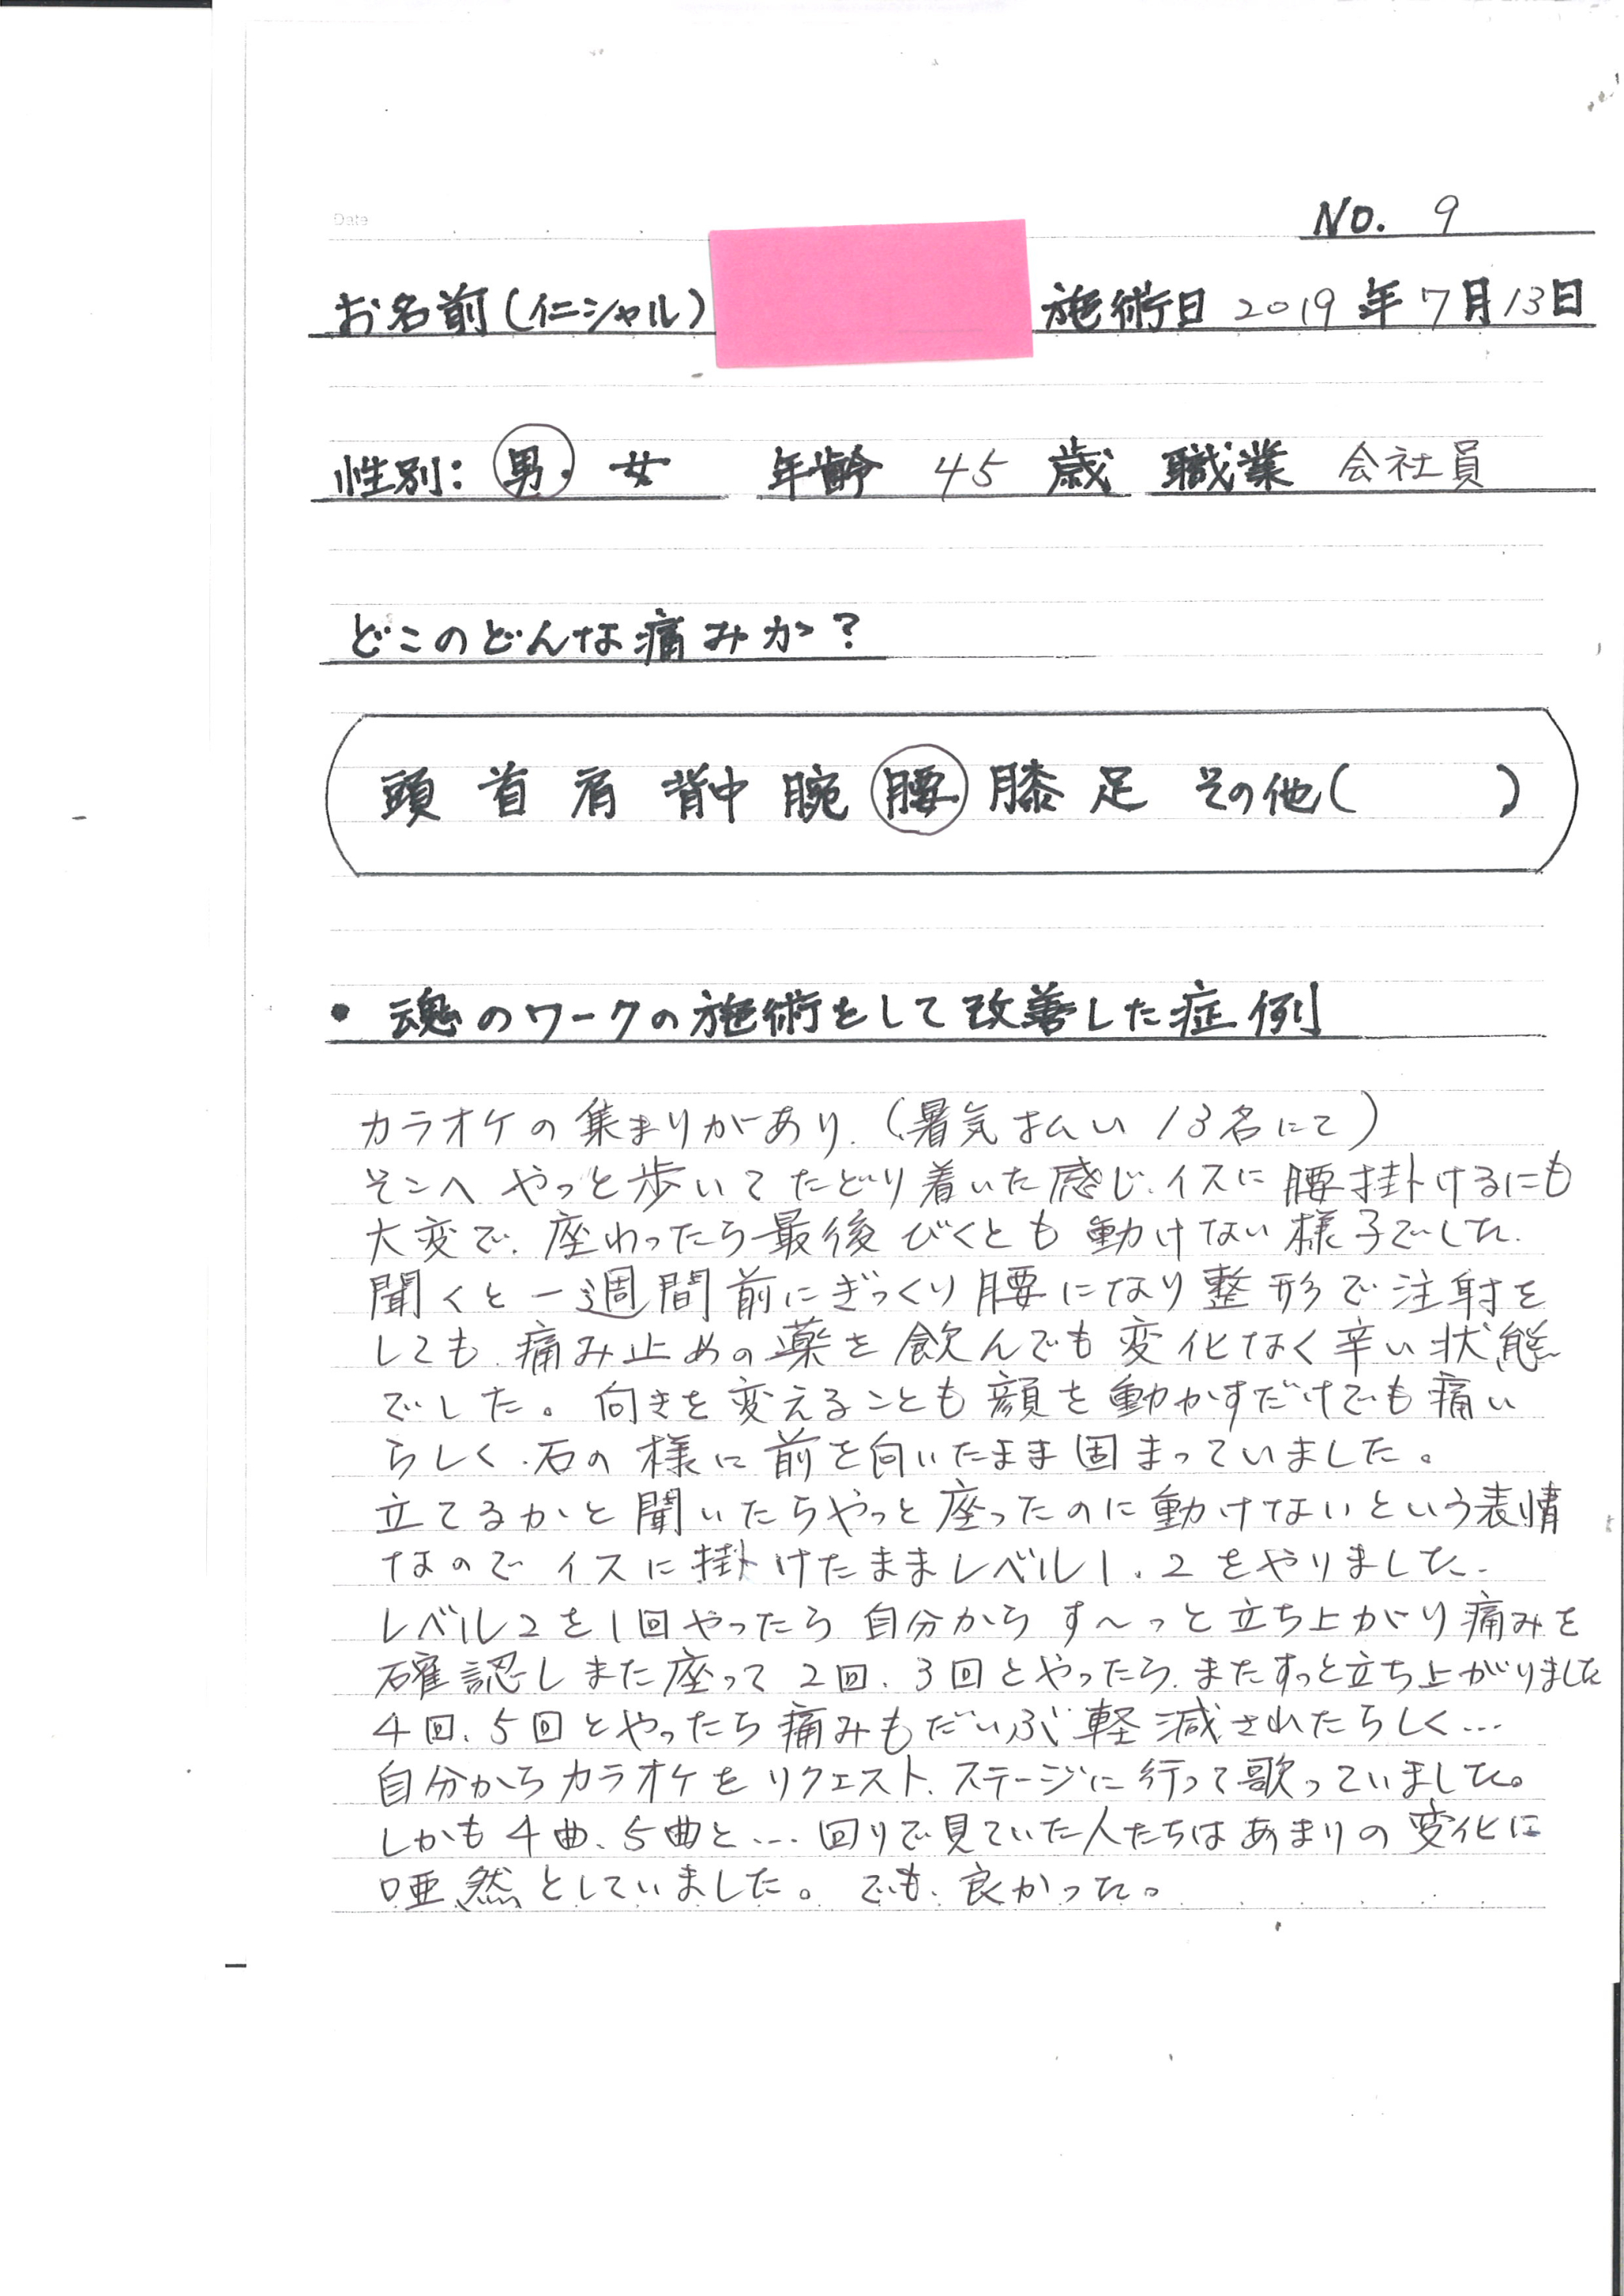 Date
No. 9
お名前(イニシャル) 施術日 2019年7月13日
性別: 男・女 年齢 45 歳 職業 会社員
どこのどんな痛みか?
頭 首 肩 背中 腕 腰 膝 足 その他( )
• 魂のワークの施術をして改善した症例
カラオケの集まりがあり、(暑気払い 13名にて)
そこへ やっと歩いてたどり着いた感じ、イスに腰掛けるにも
大変で、座わったら最後 びくとも動けない様子でした、
聞くと一週間前にぎっくり腰になり整形で注射を
しても、痛み止めの薬を飲んでも変化なく辛い状態
でした。向きを変えることも顔を動かすだけでも痛い
らしく、石の様に前を向いたまま固まっていました。
立てるかと聞いたらやっと座ったのに動けないという表情
なのでイスに掛けたままレベル1、2をやりました、
レベル2を1回やったら自分からす〜っと立ち上がり痛みを
確認しまた座って2回、3回とやったら、またすっと立ち上がりました
4回、5回とやったら痛みもだいぶ軽減されたらしく…
自分からカラオケをリクエスト、ステージに行って歌っていました。
しかも4曲、5曲と… 回りで見ていた人たちはあまりの変化に
唖然としていました。でも、良かった。